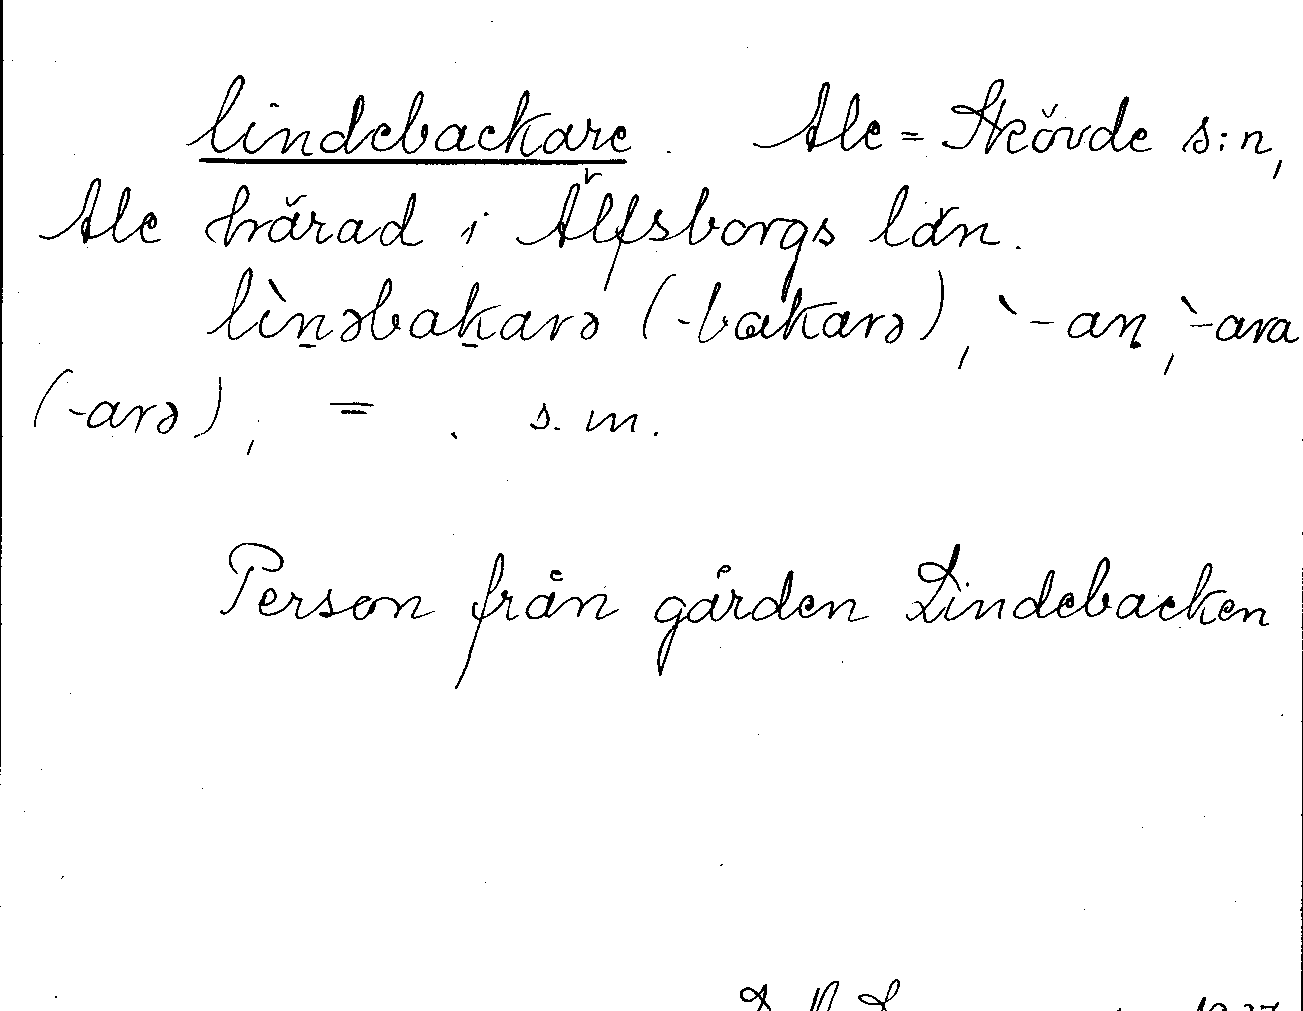 lindebackare. Ale-Skövde s:n,
Ale härad i Älfsborgs län.
lìn̠əbak̠arə (-bɑkarə), `-an̥, `-ara
(-arə), = . s. m.
Person från gården Lindebacken